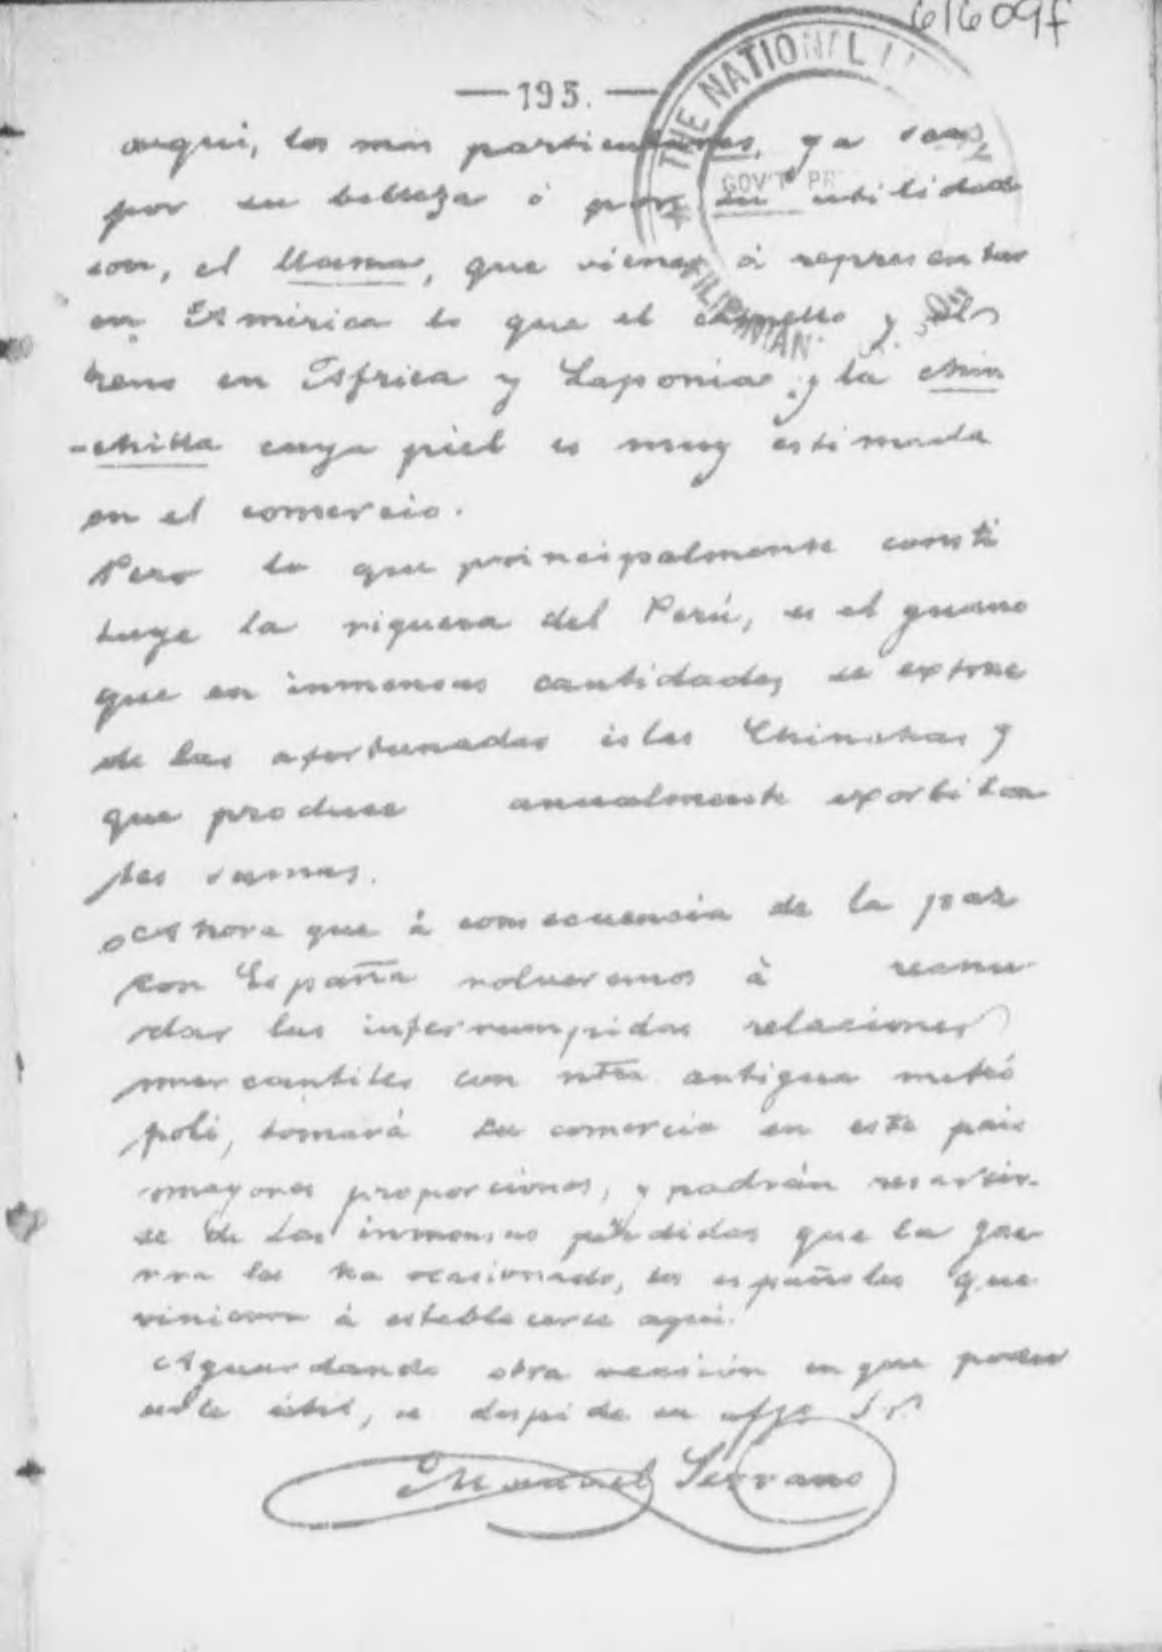 61609f
THE NATIONAL LI
GOV'T PR
FILIPINIANA
—195.—
aqui, los más particulares, ya sean
por su belleza ó por su utilidad
son, el llama, que viene á representar
en América lo que el camello y el
reno en Africa y Laponia y la chin
-chilla cuya piel es muy estimada
en el comercio.
Pero lo que principalmente consti
tuye la riqueza del Perú, es el guano
que en inmensas cantidades se extrae
de las afortunadas islas Chinchas y
que produce anualmente exorbitan
tes sumas.
Ahora que á consecuencia de la paz
con España volveremos á reanu
dar las interrumpidas relaciones
mercantiles con ntra antigua metró
poli, tomará su comercio en este pais
mayores proporciones, y podrán resarcir-
se de las inmensas pérdidas que la gue
rra les ha ocasionado, los españoles que
vinieron á establecerse aquí.
Aguardando otra ocasión en que poder
serle útil, se despide su affo S.S.
Manuel Serrano